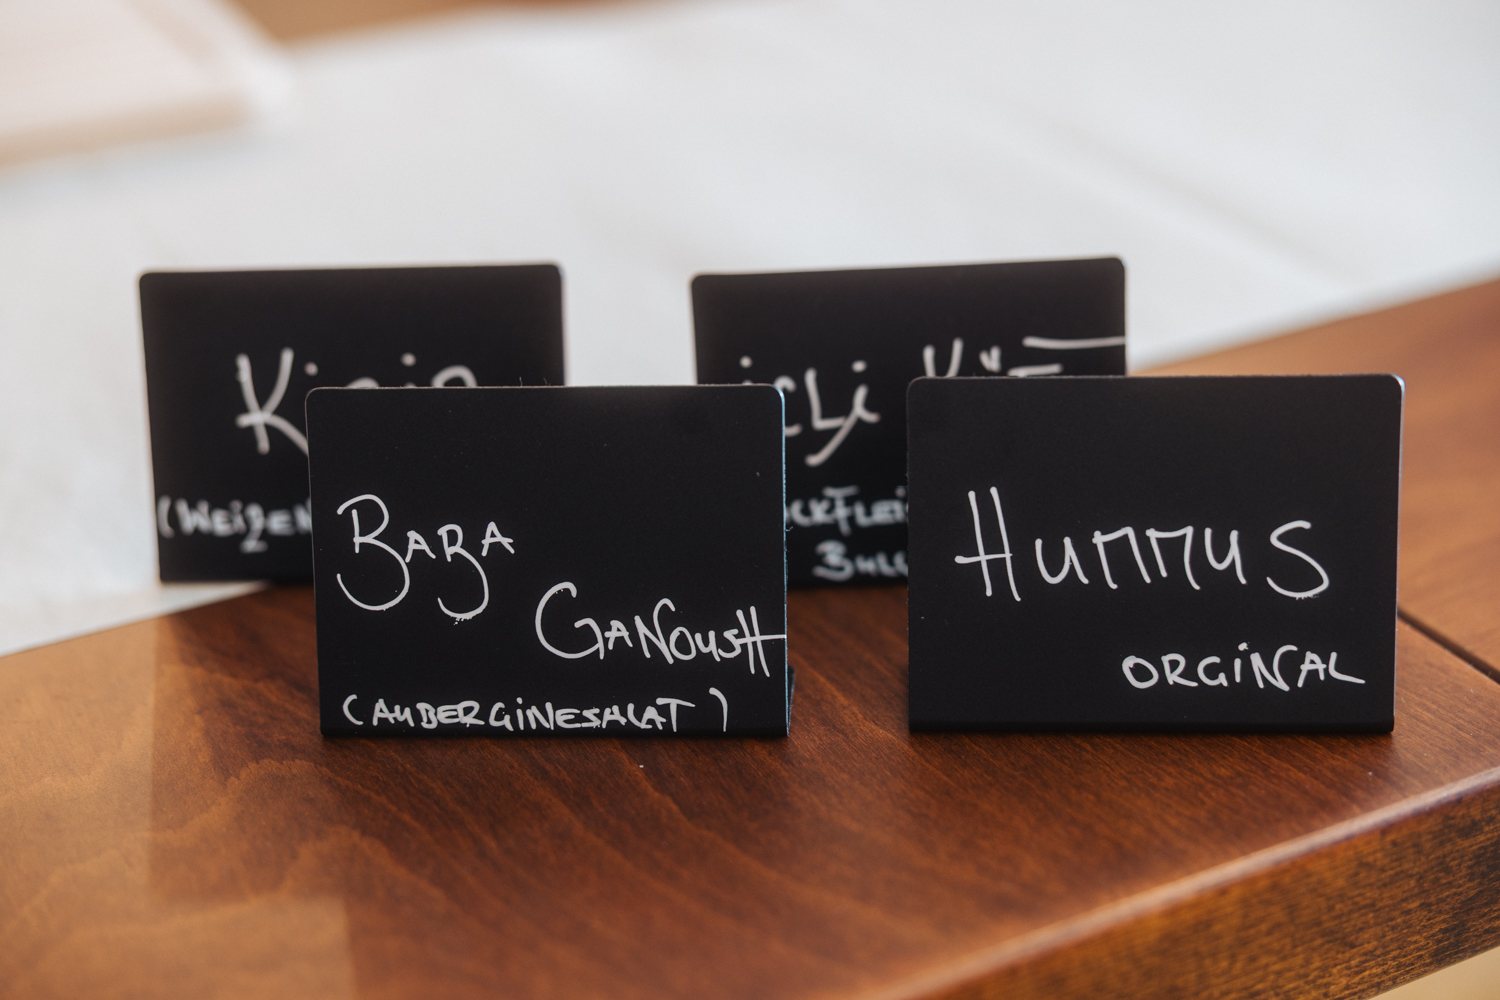 (Weizen
içli Kö
ckflei
Bull
Baba
Ganoush
(Auberginesalat)
Hummus
orginal